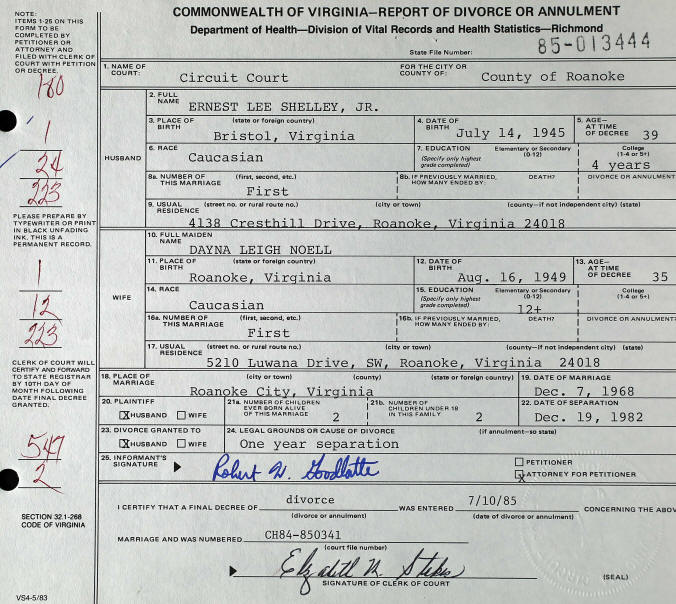 NOTE:
ITEMS 1-25 ON THIS
FORM TO BE
COMPLETED BY
PETITIONER OR
ATTORNEY AND
FILED WITH CLERK OF
COURT WITH PETITION
OR DECREE.
COMMONWEALTH OF VIRGINIA—REPORT OF DIVORCE OR ANNULMENT
Department of Health—Division of Vital Records and Health Statistics—Richmond
State File Number: 85-013444
1. NAME OF COURT: Circuit Court FOR THE CITY OR COUNTY OF: County of Roanoke
HUSBAND
2. FULL NAME ERNEST LEE SHELLEY, JR.
3. PLACE OF BIRTH (state or foreign country) Bristol, Virginia 4. DATE OF BIRTH July 14, 1945 5. AGE— AT TIME OF DECREE 39
6. RACE Caucasian 7. EDUCATION (Specify only highest grade completed) Elementary or Secondary (0-12) College (1-4 or 5+) 4 years
8a. NUMBER OF THIS MARRIAGE (first, second, etc.) First 8b. IF PREVIOUSLY MARRIED, HOW MANY ENDED BY: DEATH? DIVORCE OR ANNULMENT
9. USUAL RESIDENCE (street no. or rural route no.) (city or town) (county—if not independent city) (state)
4138 Cresthill Drive, Roanoke, Virginia 24018
WIFE
10. FULL MAIDEN NAME DAYNA LEIGH NOELL
11. PLACE OF BIRTH (state or foreign country) Roanoke, Virginia 12. DATE OF BIRTH Aug. 16, 1949 13. AGE— AT TIME OF DECREE 35
14. RACE Caucasian 15. EDUCATION (Specify only highest grade completed) Elementary or Secondary (0-12) 12+ College (1-4 or 5+)
16a. NUMBER OF THIS MARRIAGE (first, second, etc.) First 16b. IF PREVIOUSLY MARRIED, HOW MANY ENDED BY: DEATH? DIVORCE OR ANNULMENT?
17. USUAL RESIDENCE (street no. or rural route no.) (city or town) (county—if not independent city) (state)
5210 Luwana Drive, SW, Roanoke, Virginia 24018
18. PLACE OF MARRIAGE (city or town) (county) (state or foreign country) Roanoke City, Virginia 19. DATE OF MARRIAGE Dec. 7, 1968
20. PLAINTIFF X HUSBAND WIFE 21a. NUMBER OF CHILDREN EVER BORN ALIVE OF THIS MARRIAGE 2 21b. NUMBER OF CHILDREN UNDER 18 IN THIS FAMILY 2 22. DATE OF SEPARATION Dec. 19, 1982
23. DIVORCE GRANTED TO X HUSBAND WIFE 24. LEGAL GROUNDS OR CAUSE OF DIVORCE (if annulment—so state) One year separation
25. INFORMANT'S SIGNATURE Robert W. Goodlatte PETITIONER
X ATTORNEY FOR PETITIONER
I CERTIFY THAT A FINAL DECREE OF divorce WAS ENTERED 7/10/85 CONCERNING THE ABOV
(divorce or annulment) (date of divorce or annulment)
MARRIAGE AND WAS NUMBERED CH84-850341
(court file number)
SIGNATURE OF CLERK OF COURT (SEAL)
180
1
24
223
PLEASE PREPARE BY
TYPEWRITER OR PRINT
IN BLACK UNFADING
INK. THIS IS A
PERMANENT RECORD.
1
12
223
CLERK OF COURT WILL
CERTIFY AND FORWARD
TO STATE REGISTRAR
BY 10TH DAY OF
MONTH FOLLOWING
DATE FINAL DECREE
GRANTED.
547
2
SECTION 32.1-268
CODE OF VIRGINIA
VS4-5/83